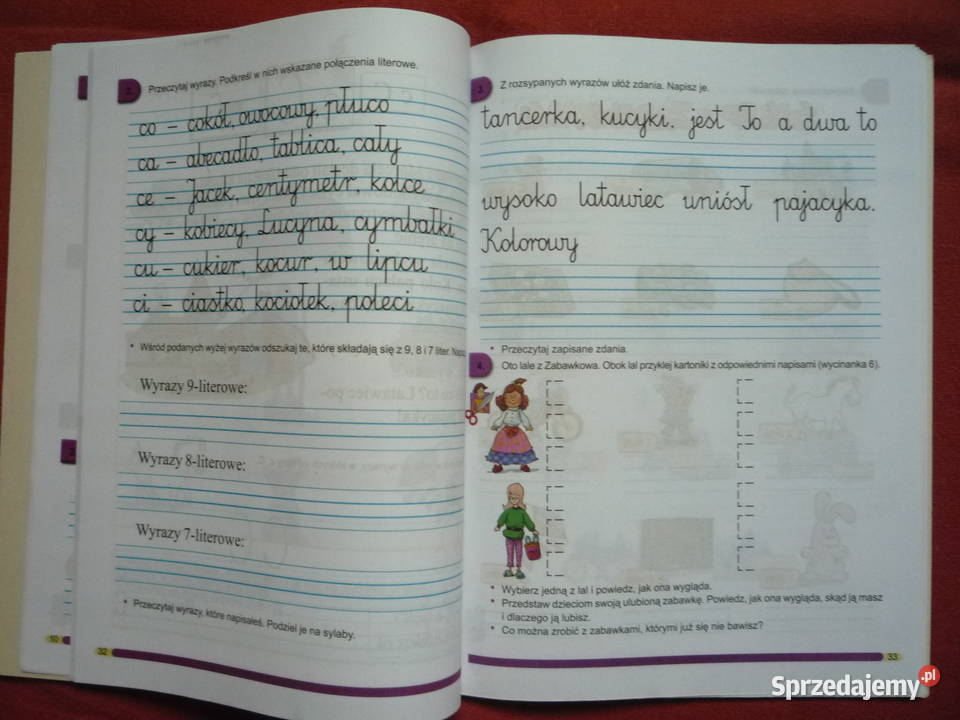 2.
Przeczytaj wyrazy. Podkreśl w nich wskazane połączenia literowe.
co – cokół, owocowy, płuco
ca – abecadło, tablica, cały
ce – Jacek, centymetr, kolce
cy – kobiecy, Lucyna, cymbałki
cu – cukier, kocur, w lipcu
ci – ciastko, kociołek, poleci
• Wśród podanych wyżej wyrazów odszukaj te, które składają się z 9, 8 i 7 liter.
Wyrazy 9-literowe:
Wyrazy 8-literowe:
Wyrazy 7-literowe:
• Przeczytaj wyrazy, które napisałeś. Podziel je na sylaby.
10
32
3.
Z rozsypanych wyrazów ułóż zdania. Napisz je.
tancerka. kucyki. jest To a dwa to
wysoko latawiec uniósł pajacyka.
Kolorowy
• Przeczytaj zapisane zdania.
4.
Oto lale z Zabawkowa. Obok lal przyklej kartoniki z odpowiednimi napisami (wycinanka 6).
• Wybierz jedną z lal i powiedz, jak ona wygląda.
• Przedstaw dzieciom swoją ulubioną zabawkę. Powiedz, jak ona wygląda, skąd ją masz
i dlaczego ją lubisz.
• Co można zrobić z zabawkami, którymi już się nie bawisz?
33
Sprzedajemy.pl